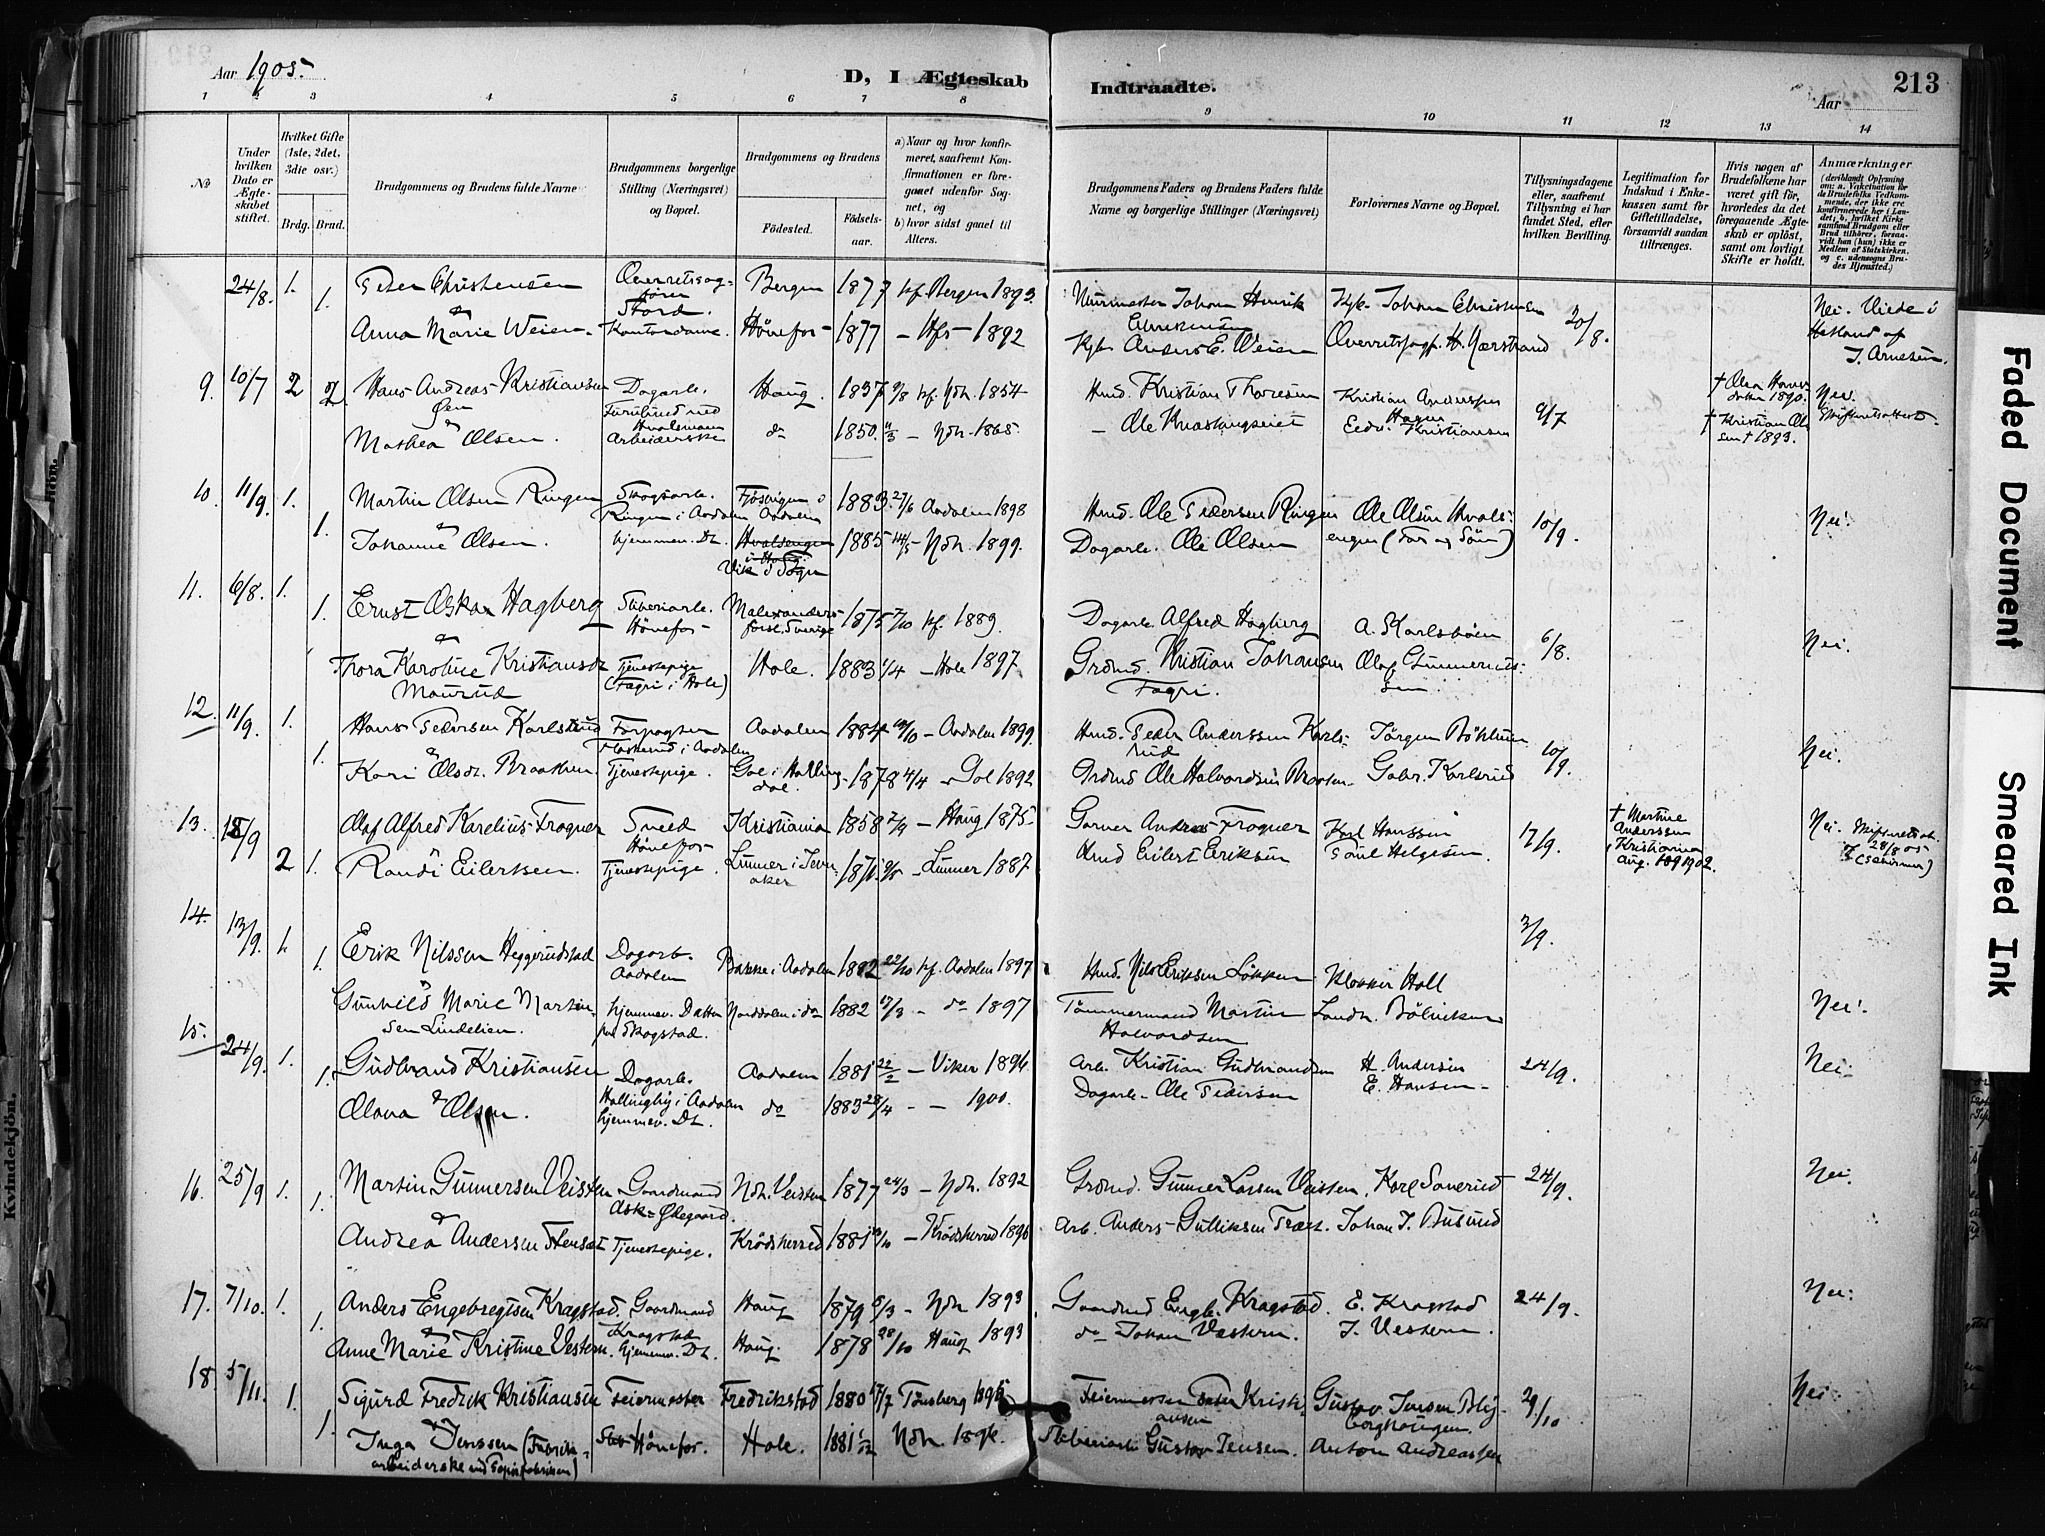 Aar 1905.
D, I Ægteskab Indtraadte.
Aar
213
1 2 3 4 5 6 7 8 9 10 11 12 13 14
No
Under hvilken Dato er Ægteskabet stiftet.
Hvilket Gifte (1ste, 2det, 3die osv.)
Brdg. Brud.
Brudgommens og Brudens fulde Navne
Brudgommens borgerlige Stilling (Næringsvei) og Bopæl.
Brudgommens og Brudens
Fødested.
Fødselsaar.
a) Naar og hvor konfirmeret, saafremt Konfirmationen er foregaaet udenfor Sognet, og
b) hvor sidst gaaet til Alters.
Brudgommens Faders og Brudens Faders fulde Navne og borgerlige Stillinger (Næringsvei)
Forlovernes Navne og Bopæl.
Tillysningsdagene eller, saafremt Tillysning ei har fundet Sted, efter hvilken Bevilling.
Legitimation for Indskud i Enkekassen samt for Giftetilladelse, forsaavidt saadan tiltrænges.
Hvis nogen af Brudefolkene har været gift før, hvorledes da det foregaaende Ægteskab er opløst, samt om lovligt Skifte er holdt.
Anmærkninger (deriblandt Oplysning om: a. Vakcination for de Brudefolks Vedkommende, der ikke ere konfirmerede her i Landet; b. hvilket Kirkesamfund Brudgom eller Brud tilhører, forsaavidt han (hun) ikke er Medlem af Statskirken, og c. udensogns Brudes Hjemsted.)
24/8. 1. 1. Peder Christensen Overretssagfører Stord. Bergen 1877 kf. Bergen 1893. Murmester Johan Henrik Christensen Kjb. Johan Christensen 20/8. Nei. Viede i Hetland af J. Arnesen.
& Anna Marie Weien. Kontordame. Hønefos 1877 – Hfs – 1892 Kjb. Anders E. Weien Overretssagf. H. Kjerstrand
9. 10/7 2 2. Hans Andreas Kristiansen Dagarb. Haug. 1837 kf. Ndh. 1854 Hmd. Kristian Thoresen Kristian Anderssen 9/7 1890. Nei.
& Mathea Olsen. Arbeiderske do 1850. – Ndh. 1865. – Ole Edv. Kristiansen † Kristian Olsen † 1893. Skifteretsattest
10. 11/9. 1. 1. Martin Olsen Ringen Skogsarb. Ringen i Aadalen Aadalen 1883. 27/6 Aadalen 1898 Hmd. Ole Pedersen Ringen Ole Olsen Hvalsengen (Far og Søn) 10/9. Nei.
& Johanne Olsen. hjemmev. Dt. Hvalsengen i Haug. Vik i Sogn 1885 14/5 – Ndh. 1899. Dagarb. Ole Olsen
11. 6/8. 1. 1. Ernst Oskar Hagberg Sliberiarb. Hønefos Malexanders forsl. Sverige 1875 7/10 kf. 1889. Dagarb. Alfred Hagberg A. Karlsbøen 6/8. Nei.
& Thora Karoline Kristiansdr. Maurud Tjenestepige (Fagri i Hole) Hole. 1883 1/4 – Hole 1897. Grdmd. Kristian Johansen Fagri. Olaf Gummerussen
12. 11/9. 1. 1. Hans Pedersen Karlsrud Forpagter i Aadalen Aadalen 1884 – Aadalen 1899. Hmd. Peder Anderssen Karlsrud Jørgen 10/9. Nei.
& Kari Olsdr. Braathen. Tjenestepige. Gol i Hallingdal. 1878 4/4 – Gol 1892 Grdmd Ole Halvordsen Braaten. Gabr. Karlsrud
13. 18/9 2 1. Olaf Alfred Karelius Frogner Smed Hønefos Kristiania 1858 – Haug 1875 Garver Andreas Frogner Karl Hanssen 17/9. † Martine Anderssen Kristiania Aug. 1902. Nei. Skifteretsatt. 28/8 05
& Randi Eilertsen. Tjenestepige. Lunner i Jevnaker 1871. – Lunner 1887 Hmd Eilert Eriksen Paul Helgesen.
14. 13/9. 1. 1. Erik Nilssen Heggerudstad Dagarb. Aadalen Bakke i Aadalen 1882 22/10 kf. Aadalen 1897 Hmd. Nils Eriksen Løkken Klokker Hall 3/9.
& Gunhild Marie Martinsen Lindelien. hjemmev. Datter paa Skagstad. Norddalen i do 1882 – do 1897 Tømmermand Martin Halvordsen Landh. Bølviken Nei.
15. 24/9. 1. 1. Gudbrand Kristiansen Dagarb. Hallingby i Aadalen Aadalen 1881 22/2 – Viker 1896 Arb. Kristian Gudbrandsen H. Andersen 24/9. Nei.
& Olava Olsen. hjemmev. Dt. do 1883 28/4 – – 1900. Dagarb. Ole Pedersen E. Hansen
16. 25/9 1. 1. Martin Gunnersen Veisten Gaardmand Ask–Ødegaard. Ndh. Veisten 1877 24/3 – Ndh. 1892 Grdmd. Gunner Larsen Veisten. Karl Saverud 24/9. Nei.
& Andrea Andersen Stensæt Tjenestepige. Krødsherred 1881 – Krødsherred 1896 Arb. Anders Gulliksen Træet. Johan J. Busund
17. 7/10. 1. 1. Anders Engebregtsen Kragstad. Gaardmand Kragstad Haug 1879 5/3 – Ndh 1893 Gaardmd Engb. Kragstad. E. Kragstad 24/9. Nei.
& Anne Marie Kristine Vestern. hjemmev. Dt. Haug. 1878 28/10 Haug 1893 do Johan Vestern. J. Vestern.
18. 5/11. 1. 1. Sigurd Fredrik Kristiansen Feiermester Fredrikstad 1880 17/7 Tønsberg 1895 Feiermester Peder Kristiansen Gustav Jensen Blyberghaugen. 29/10 Nei
& Inga Jenssen (Fabrikarbeiderske ved Papirfabrikken) Hønefos. Hole. 1881 Ndh. 1896. Sliberiarb. Gustav Jensen. Anton Andreassen
Faded Document
Smeared Ink
Kvindekjön.